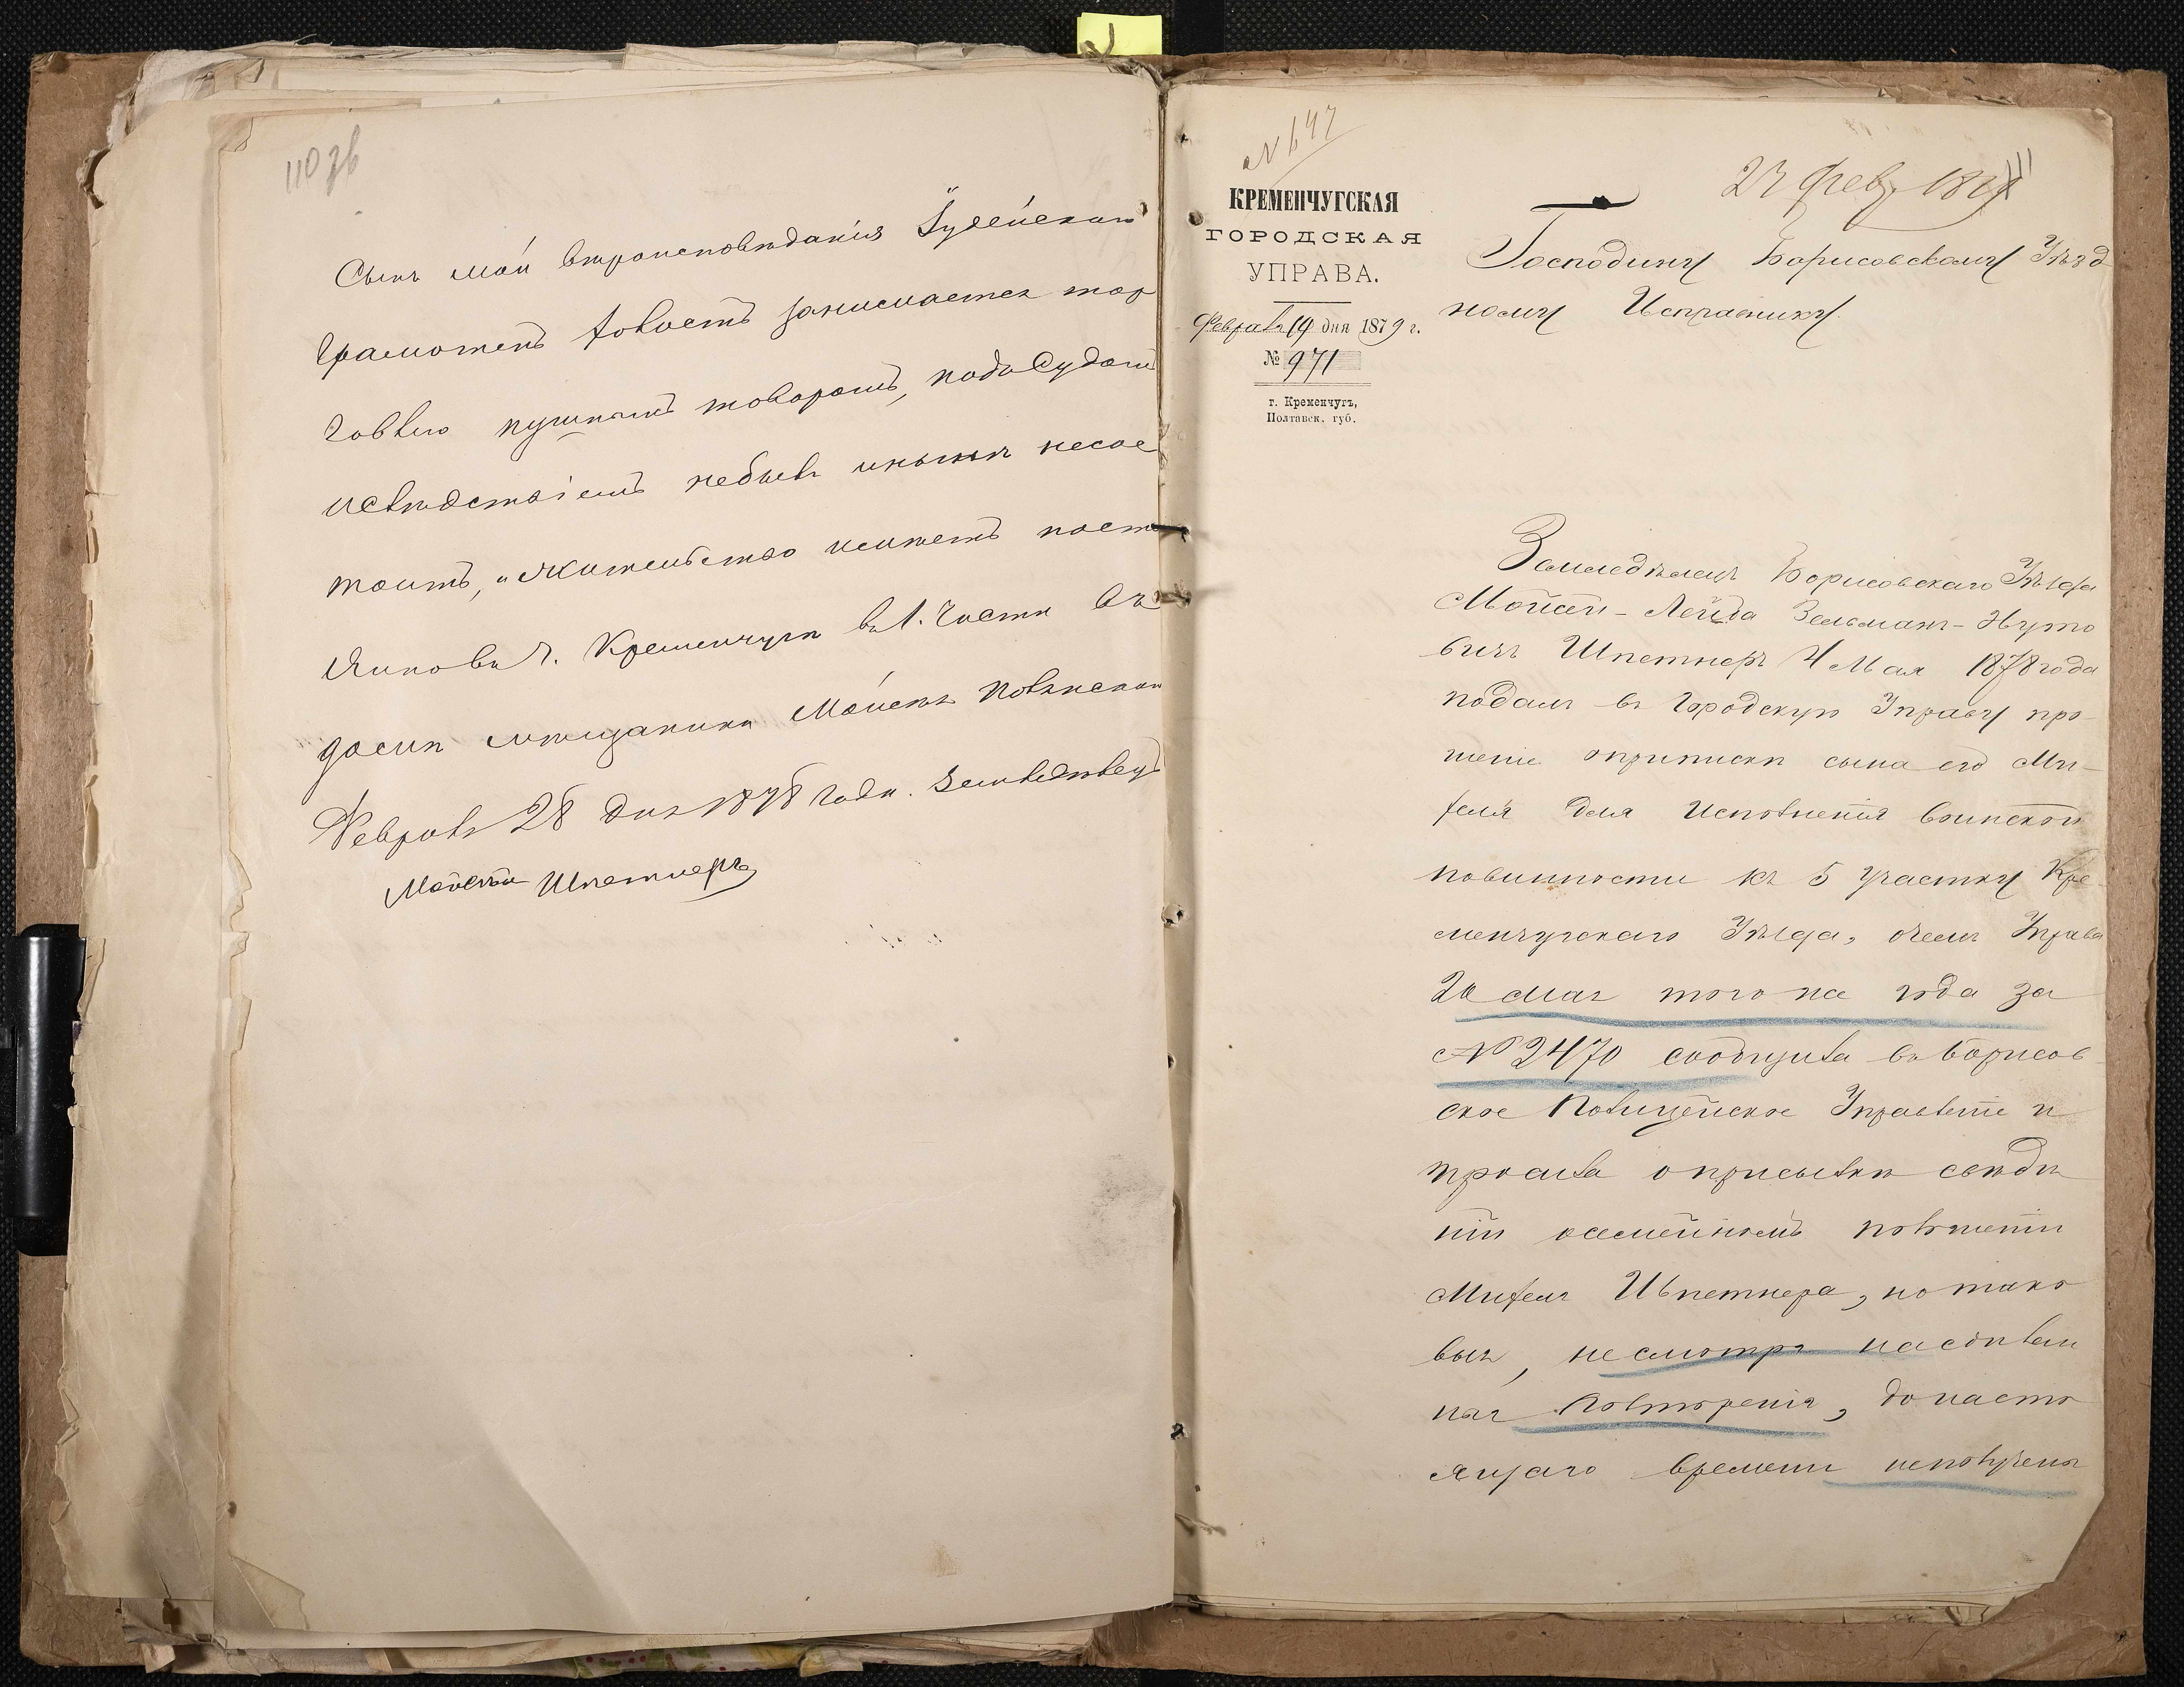 110 зв
Сынъ мой вѣроисповѣданія Іудейскаго
Грамотенъ холостъ занимается тор
говлею пушнымъ товаромъ, подъ Судомъ
и слѣдствіемъ небылъ и нынѣ несос
тоитъ, жительство имѣетъ
г. Кременчугѣ въ 1. части въ
домѣ мѣщанина
Февраля 28 дня 1878 года. Земледѣлецъ
Шпетнеръ
1
№ 647
КРЕМЕНЧУГСКАЯ
ГОРОДСКАЯ
УПРАВА.
Февраля 14 дня 1879 г.
№ 971
г. Кременчугъ,
Полтавск. губ.
Фев. 1879
Господину Борисовскому Уѣзд
ному Исправнику.
Земледѣлецъ Борисовскаго Уѣзда
Зельманъ-
вичъ Шпетнеръ 4 Мая 1878 года
подалъ въ Городскую Управу про
шеніе о припискѣ сына его Ми-
хеля для Исполненія воинской
повинности къ 5 участку Кре
менчугскаго Уѣзда, о чемъ Управа
мая того же года за
№ 2470 сообщила въ Борисов
ское Полицейское Управленіе и
просила о присылкѣ свѣдѣ
ній о семейномъ положеніи
Михеля Шпетнера, но тако
выя, несмотря на сдѣлан
ныя повторенія, до насто
ящаго времени неполучены